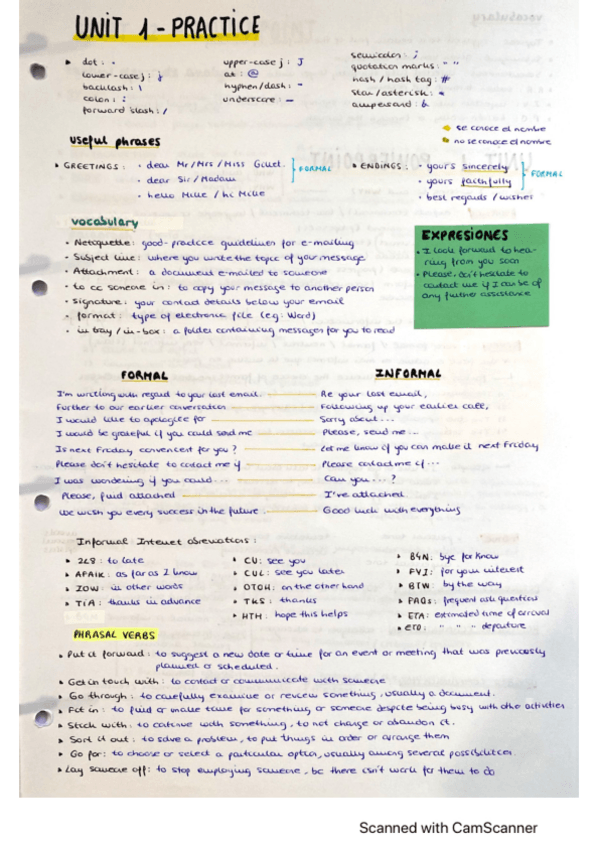 UNIT 1 - PRACTICE
▸ dot : .
lower-case j : j
backlash : \
colon : :
forward slash : /
upper-case j : J
at : @
hyphen/dash : -
underscore : _
semicolon : ;
quotation marks : " "
hash / hash tag : #
star/asterisk : *
ampersand : &
se conoce el nombre
no se conoce el nombre
useful phrases
▸ GREETINGS :
• dear Mr/Mrs/Miss
• dear Sir/Madam
• hello Mike / hi Mike
FORMAL
▸ ENDINGS :
• yours sincerely
• yours faithfully
• best regards / wishes
FORMAL
vocabulary
• Netoquette: good-practice guidelines for e-mailing
• Subject line: where you write the topic of your message
• Attachment: a document e-mailed to someone
• to cc someone in: to copy your message to another person
• signature: your contact details below your email
• format: type of electronic file (eg: Word)
• in tray / in-box: a folder containing messages for you to read
EXPRESIONES
• I look forward to hea-
ring from you soon
• Please, don't hesitate to
contact me if I can be of
any further assistance
FORMAL
INFORMAL
I'm writing with regard to your last email. Re your last email,
Further to our earlier conversation Following up your earlier call,
I would like to apologize for Sorry about...
I would be grateful if you could send me Please, send me...
Is next Friday convenient for you? Let me know if you can make it next Friday
Please don't hesitate to contact me if Please contact me if...
I was wondering if you could... Can you...?
Please, find attached I've attached
We wish you every success in the future. Good luck with everything
Informal Internet abreviations :
▸ 2L8 : to late
▸ AFAIK : as far as I know
▸ IOW : in other words
▸ TIA : thanks in advance
▸ CU : see you
▸ CUL : see you later
▸ OTOH : on the other hand
▸ TKS : thanks
▸ HTH : hope this helps
▸ B4N : bye for know
▸ FYI : for your interest
▸ BTW : by the way
▸ FAQs : frequent ask question
▸ ETA : estimated time of arrival
▸ ETD : " " " departure
PHRASAL VERBS
▸ Put it forward : to suggest a new date or time for an event or meeting that was previously
planned or scheduled.
▸ Get in touch with : to contact or communicate with someone
▸ Go through : to carefully examine or review something, usually a document.
▸ Fit in : to find or make time for something or someone despite being busy with other activities
▸ Stick with : to continue with something, to not change or abandon it.
▸ Sort it out : to solve a problem, to put things in order or arrange them
▸ Go for : to choose or select a particular option, usually among several possibilities.
▸ Lay someone off : to stop employing someone, bc there isn't work for them to do
Scanned with CamScanner